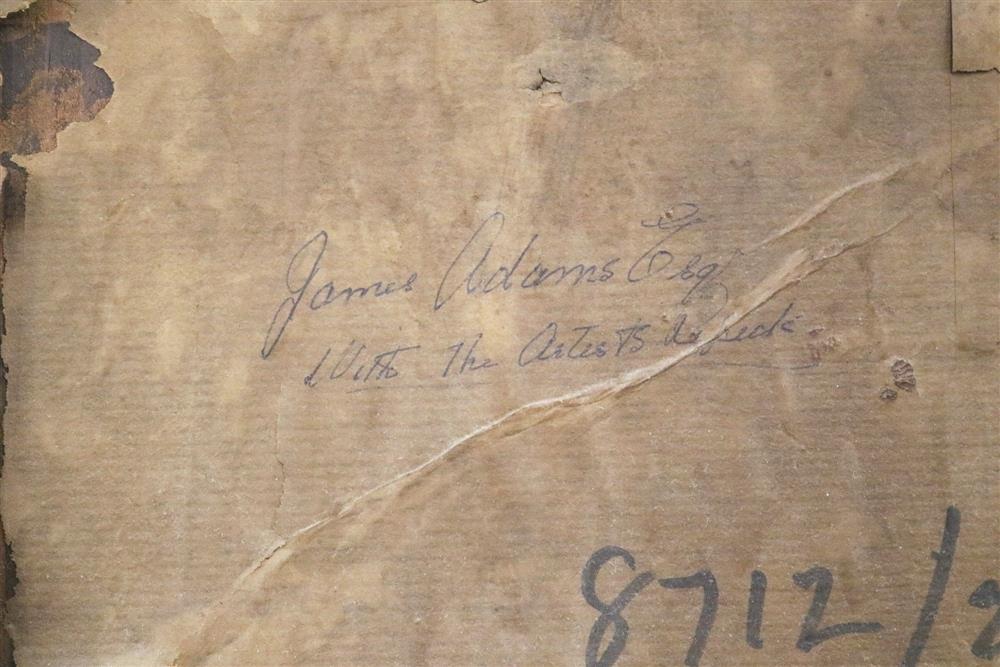 James Adams Esqr
With the Artists Respects
8712/2